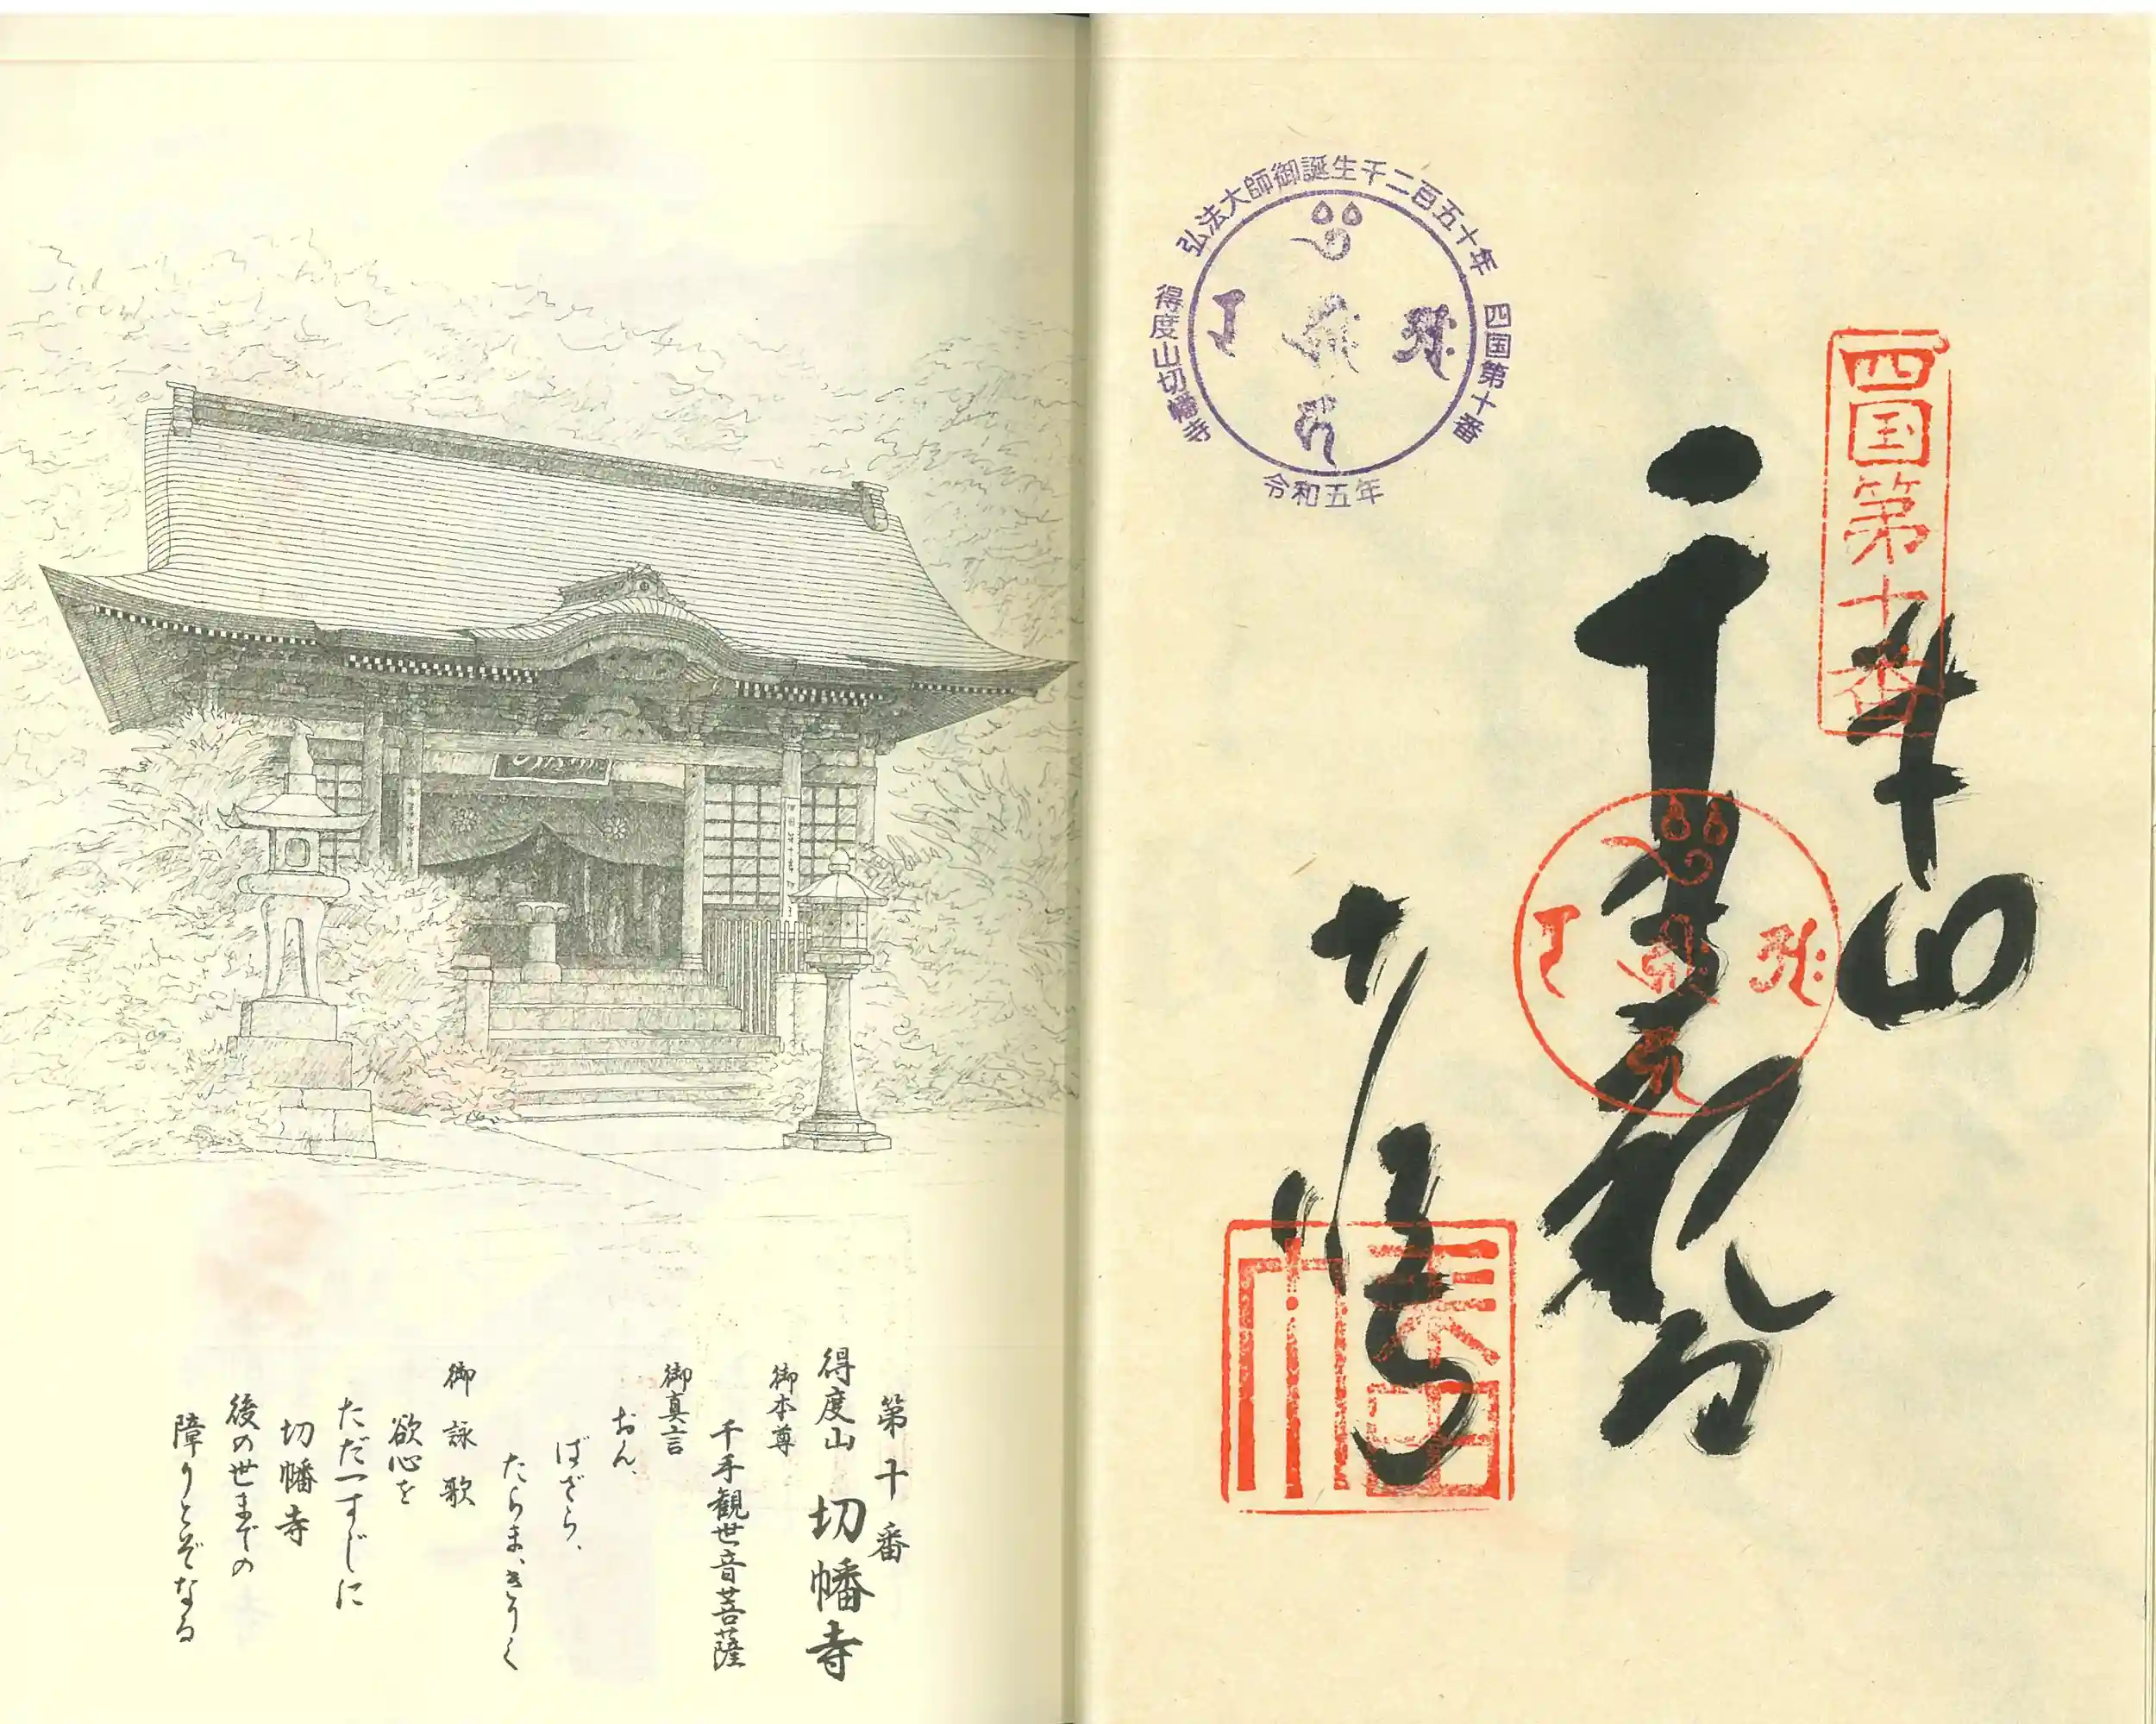 四国第十番
奉
千手
弘法大師御誕生千二百五十年
四国第十番
得度山切幡寺
令和五年
第十番
得度山 切幡寺
御本尊
千手観世音菩薩
御真言
おん、
ばざら、
たらま、きりく
御詠歌
欲心を
ただ一すじに
切幡寺
後の世までの
障りとぞなる